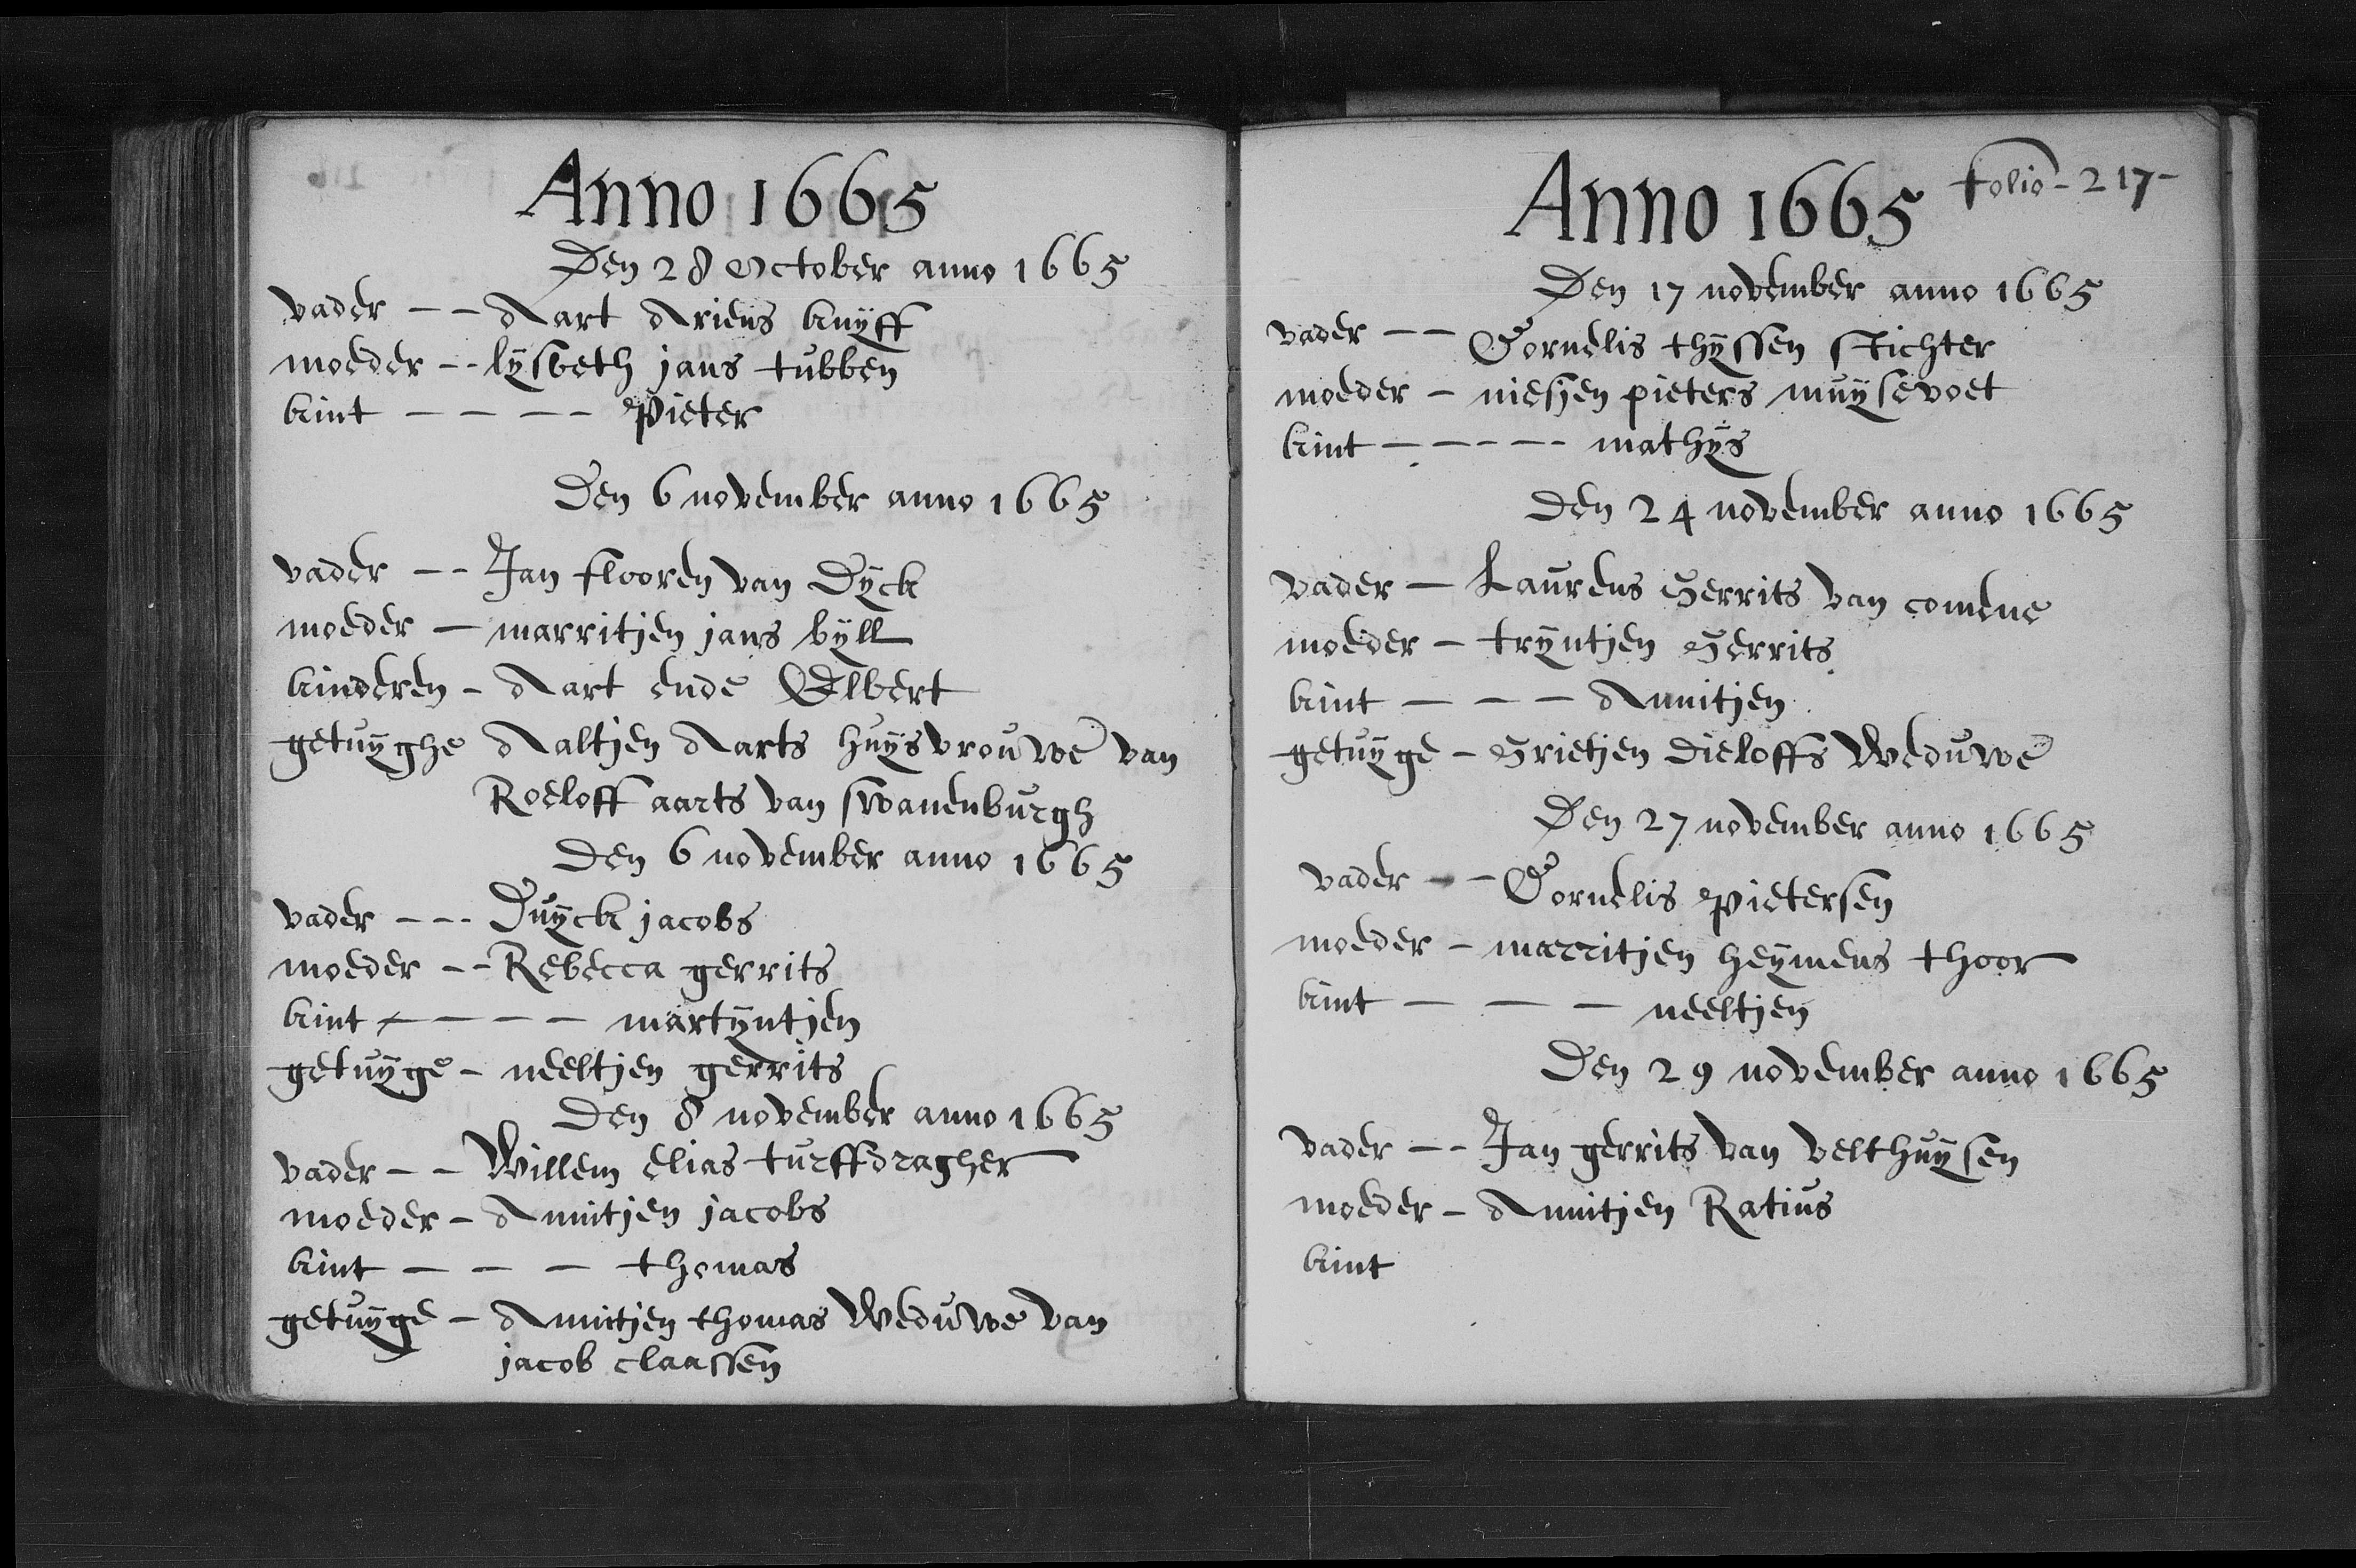 Anno 1665
Den 28 October anno 1665
vader -- Aart Ariens knÿff
moeder -- lÿsbeth jans tubben
kint ---- Pieter
Den 6 november anno 1665
vader -- Jan flooren van Dÿck
moeder - marritjen jans bÿll
kinderen - Aart ende Elbert
getuÿghe Aaltjen Aarts huÿsvrouwe van
Roeloff aarts van swanenburgh
Den 6 november anno 1665
vader --- Duÿck jacobs
moeder -- Rebecca gerrits
kint ---- martÿntjen
getuÿge - neeltjen gerrits
Den 8 november anno 1665
vader -- Willem elias turffdragher
moeder - Annitjen jacobs
kint --- thomas
getuÿge - Annitjen thomas Weduwe van
jacob claassen
folio - 217 -
Anno 1665
Den 17 november anno 1665
vader -- Cornelis thÿssen stichter
moeder - niesjen pieters muÿsevoet
kint ---- mathÿs
Den 24 november anno 1665
vader - Laurens Gerrits van comene
moeder - trÿntjen Gerrits
kint --- Annitjen
getuÿge - Grietjen dieloffs Weduwe
Den 27 november anno 1665
vader -- Cornelis Pietersen
moeder - marritjen heÿmens thoor
kint --- neeltjen
Den 29 november anno 1665
vader -- Jan gerrits van velthuÿsen
moeder - Annitjen Ratius
kint